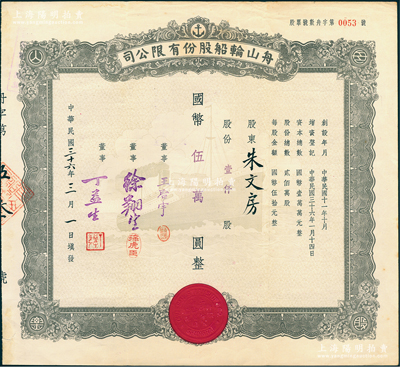 股票號數舟字第 0053 號
司公限有份股船輪山舟
創設年月 中華民國十一年十月
增資登記 中華民國三十六年一月十四日
資本總數 國幣壹萬萬元整
股份總數 貳佰萬股
每股金額 國幣伍拾元整
股東 朱文房
股份 壹仟 股
國幣 伍萬 圓整
董事
董事 徐翔生
董事 丁益生
中華民國三十六年三月一日填發
舟字第
號
上海陽明拍賣